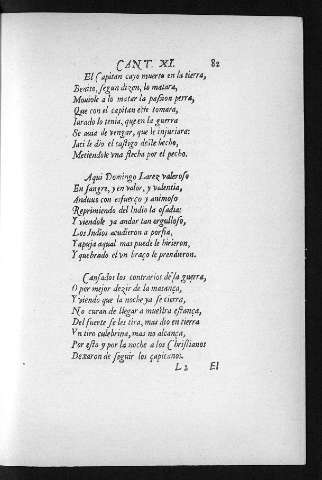 CANT. XI. 82
El Capitan cayo muerto en la tierra,
Benito, segun dizen, lo matara,
Mouiole a lo matar la passion perra,
Que con el capitan este tomara,
Iurado lo tenia, que en la guerra
Se auia de vengar, que le injuriara:
Iati le dio el castigo deste hecho,
Metiendole vna flecha por el pecho.
Aqui Domingo Larez valeroso
En sangre, y en valor, y valentia,
Anduuo con esfuerço y animoso
Reprimiendo del Indio la osadia:
Y viendole ya andar tan orgulloso,
Los Indios acudieron a porfia,
Y a paja aqual mas puede le hirieron,
Y quebrado el vn braço le prendieron.
Cansados los contrarios de la guerra,
O por mejor dezir de la matança,
Y viendo que la noche ya se cierra,
No curan de llegar a nuestra estança,
Del fuerte se les tira, mas dio en tierra
Vn tiro culebrina, mas no alcança,
Por esto y por la noche a los Christianos
Dexaron de seguir los çapicanos.
L 2 El